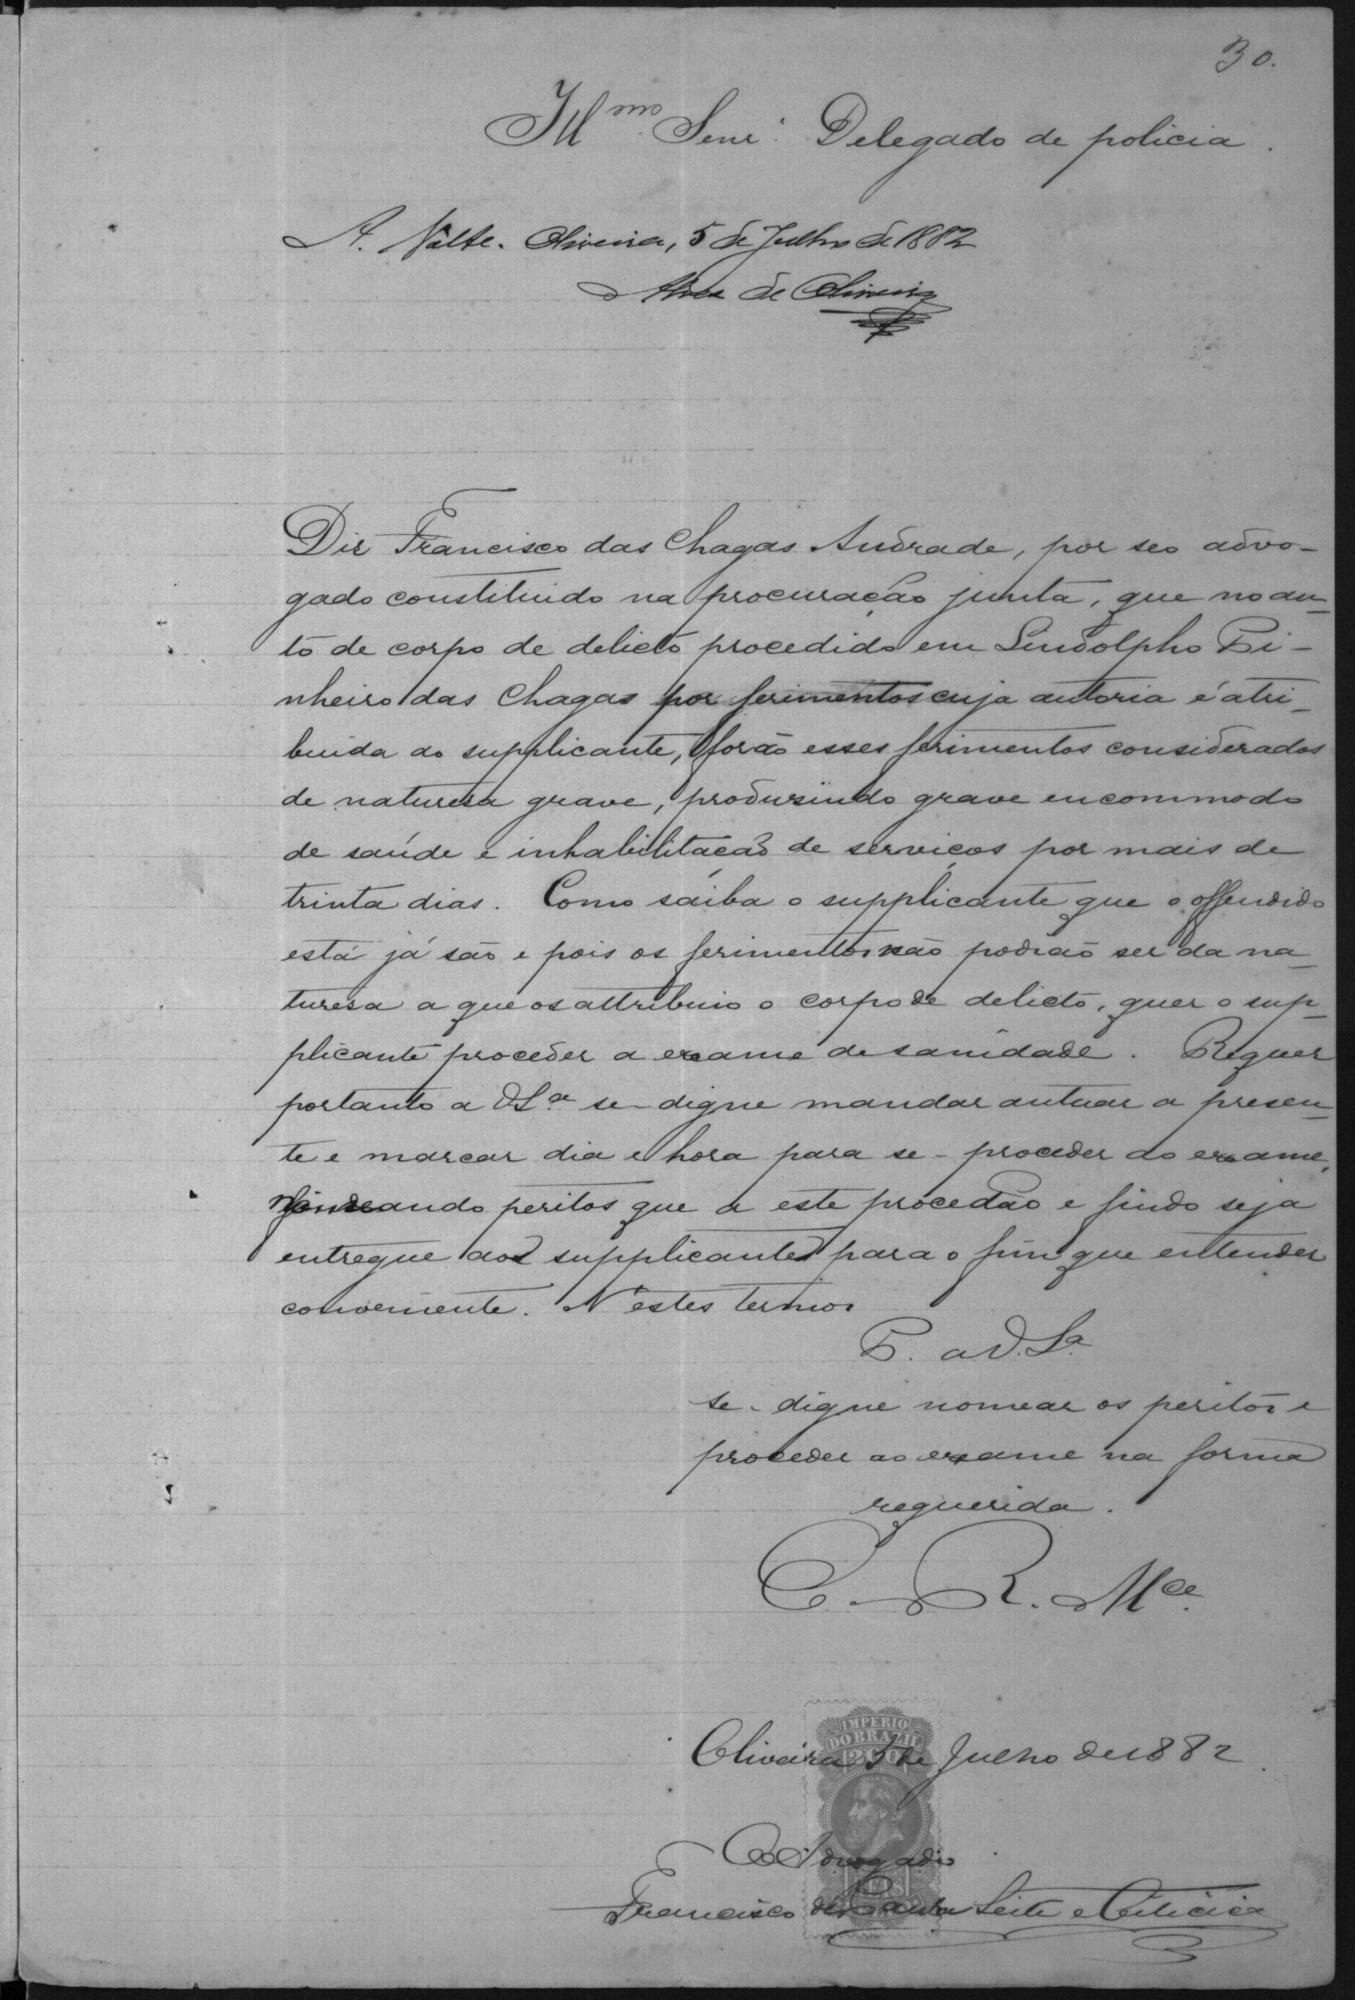 30.
Illmo Senr. Delegado de policia.
A. Nolte. Oliveira, 5 de Julho de 1882
Alves de Oliveira
Diz Francisco das Chagas Andrade, por seo advo-
gado constituido na procuração junta, que no au-
to de corpo de delicto procedido em Lindolpho Pi-
nheiro das Chagas por ferimentos cuja autoria é atri-
buida ao supplicante, forão esses ferimentos considerados
de naturesa grave, produzindo grave encommodo
de saúde e inhabilitacão de serviços por mais de
trinta dias. Como sáiba o supplicante que o offendido
está já são e pois os ferimentos não podião ser da na-
turesa a que os attribuio o corpo de delicto, quer o sup-
plicante proceder a exame de sanidade. Requer
portanto a VSa. se-digne mandar autuar a presen-
te e marcar dia e hora para se-proceder ao exame,
nomeando peritos que a este procedão e findo seja
entregue ao supplicante para o fim que entender
conveniente. N'estes termos
P. a V. Sa.
se-digne nomear os peritos e
proceder ao exame na forma
requerida.
E. R. Mce.
IMPERIO
DO BRAZIL
200
Oliveira 5 de Julho de 1882
O Advogado
REIS
Francisco de Paula Leite e Oiticica